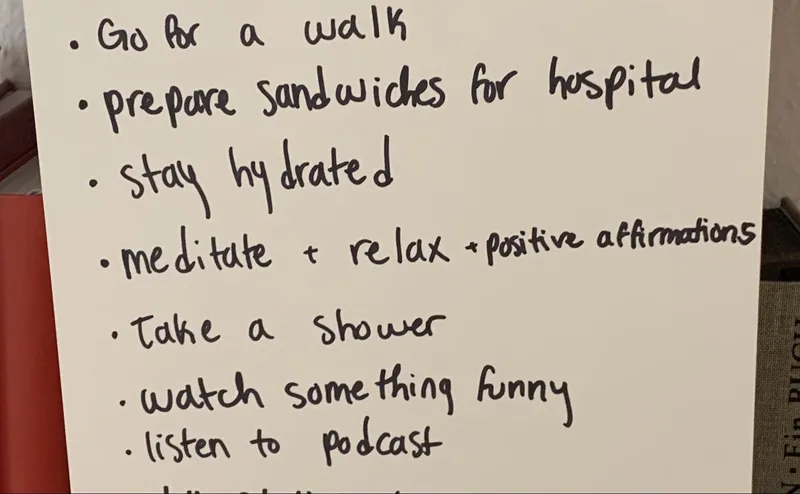 • Go for a walk
• prepare sandwiches for hospital
• stay hydrated
• meditate + relax + positive affirmations
• Take a shower
• watch something funny
• listen to podcast
Ein BUCH